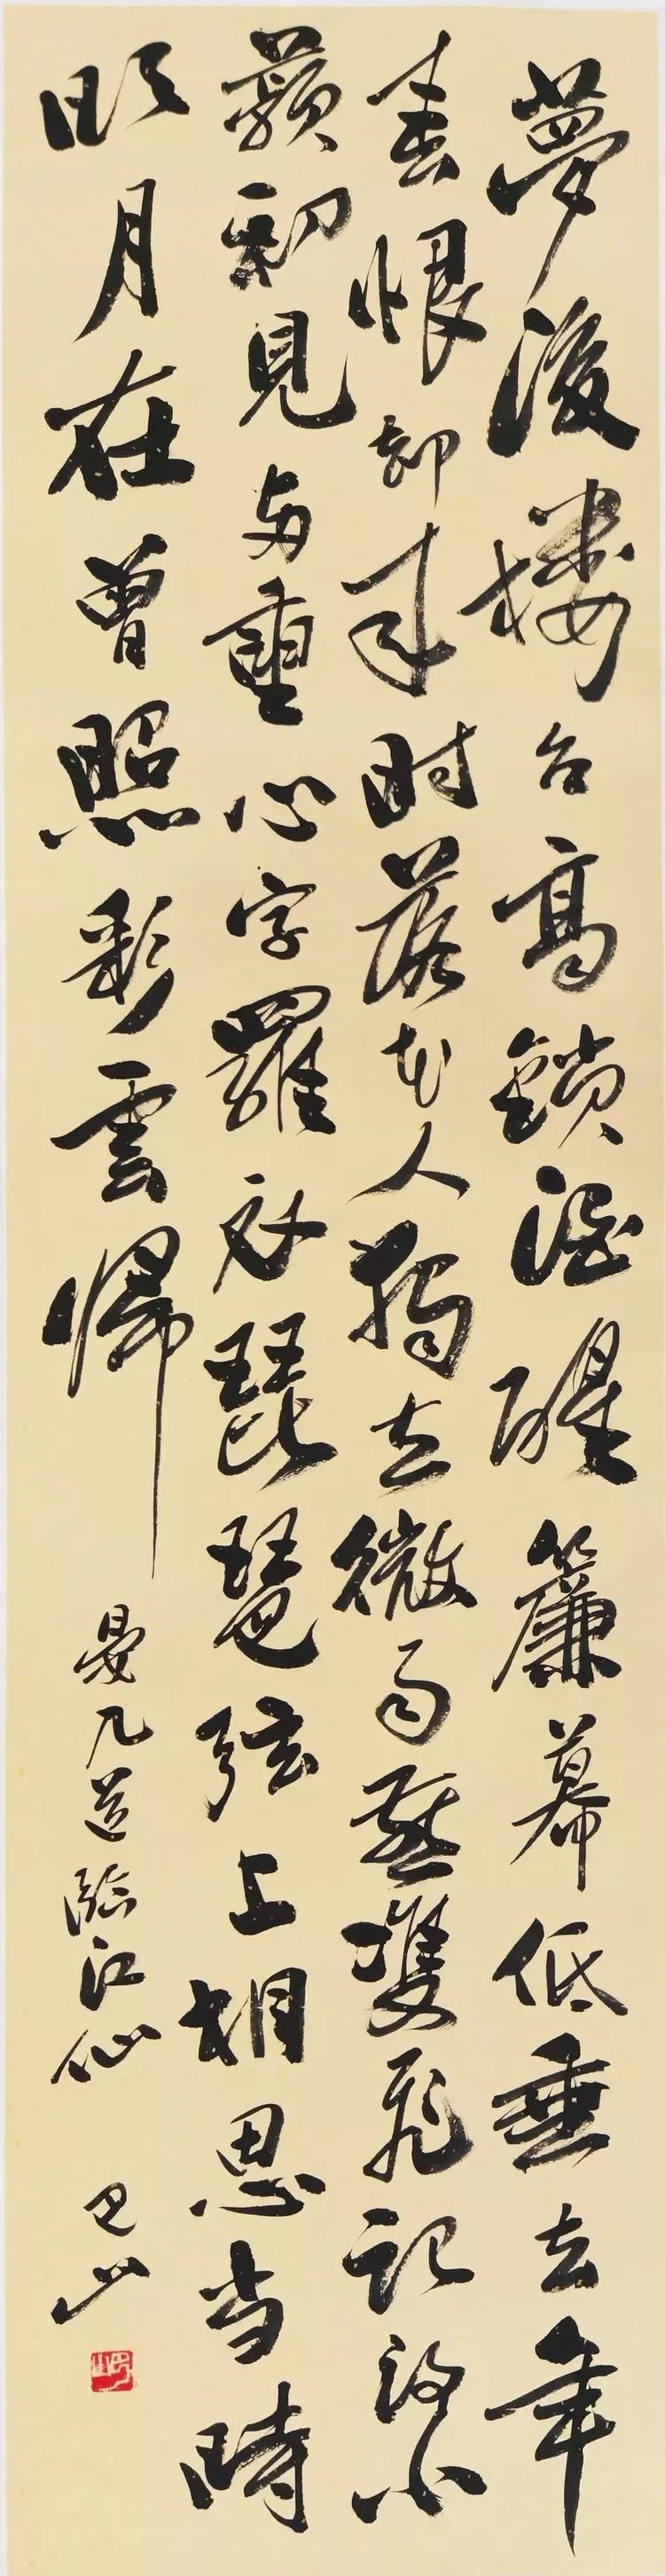 夢後樓台高鎖酒醒簾幕低垂去年
春恨却来时落花人獨立微雨燕雙飛記得小
蘋初見两重心字羅衣琵琶弦上相思当時
明月在曾照彩雲歸
晏几道臨江仙